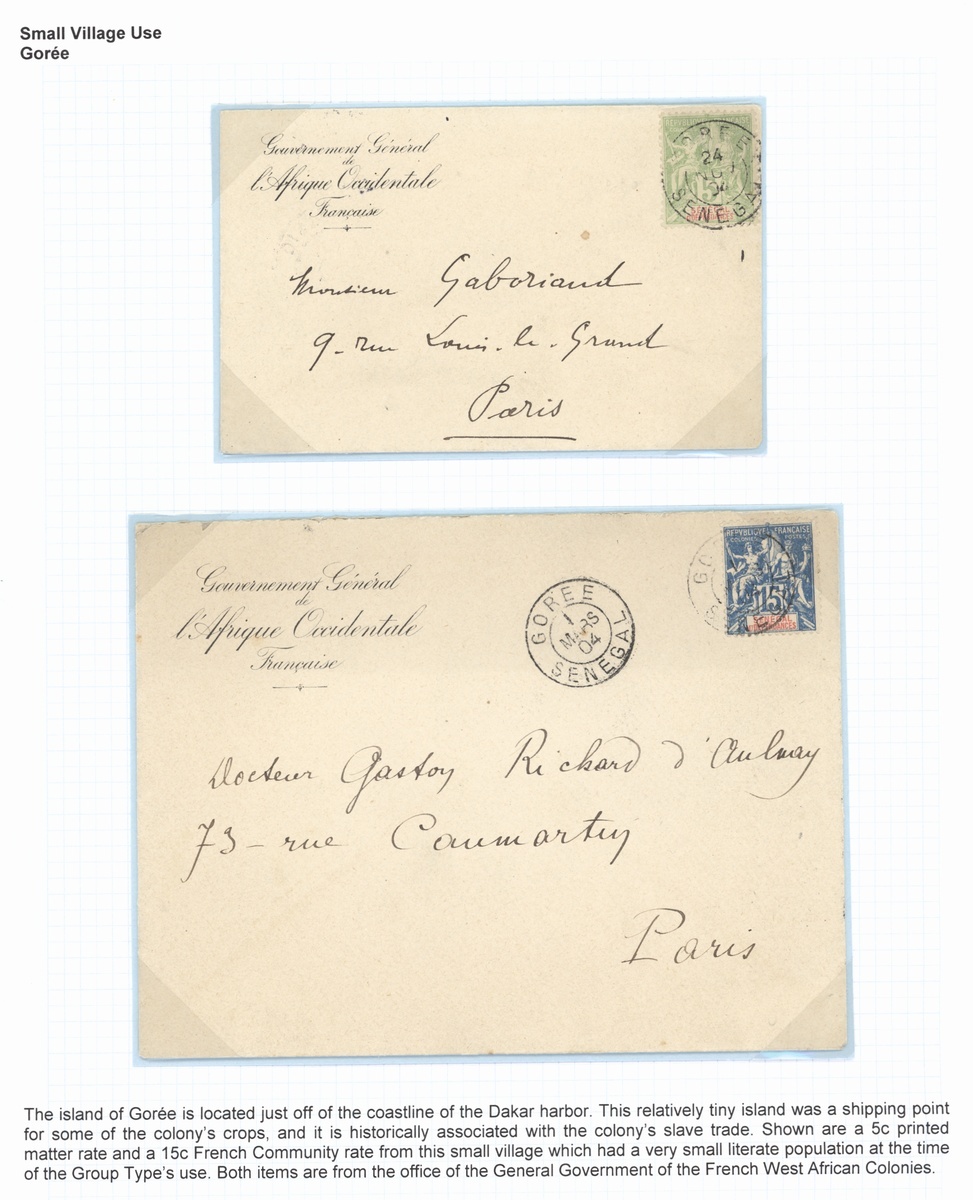 Small Village Use
Gorée
Gouvernement Général
de
l'Afrique Occidentale
Française
GOREE
24
04
SENEGAL
Monsieur Gaboriaud
9 - rue Louis-le-Grand
Paris
Gouvernement Général
de
l'Afrique Occidentale
Française
GOREE
1
MARS
04
SENEGAL
REPVBLIQVE FRANÇAISE
COLONIES POSTES
15
Docteur Gaston Richard d'Aulnay
73 - rue Caumartin
Paris
The island of Gorée is located just off of the coastline of the Dakar harbor. This relatively tiny island was a shipping point
for some of the colony's crops, and it is historically associated with the colony's slave trade. Shown are a 5c printed
matter rate and a 15c French Community rate from this small village which had a very small literate population at the time
of the Group Type's use. Both items are from the office of the General Government of the French West African Colonies.